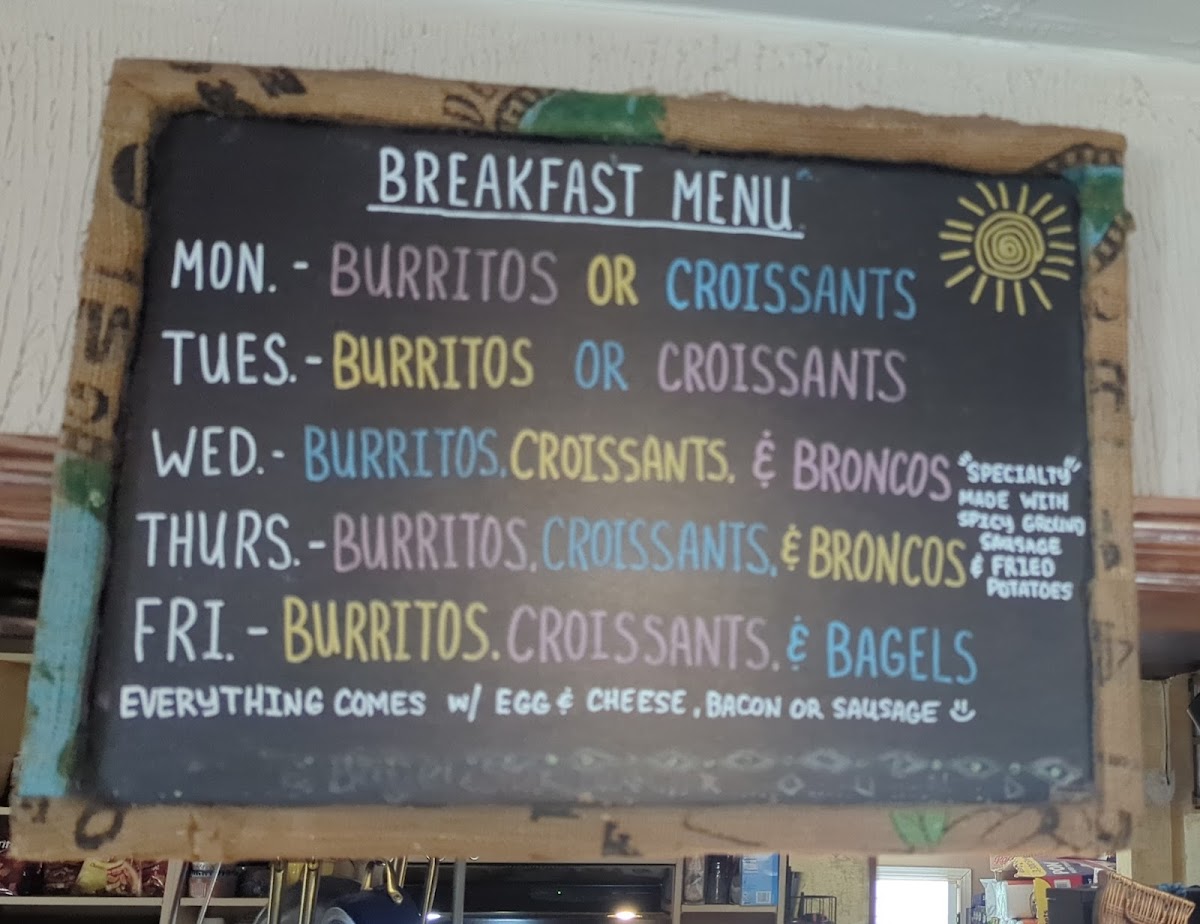 BREAKFAST MENU
MON. - BURRITOS OR CROISSANTS
TUES. - BURRITOS OR CROISSANTS
WED. - BURRITOS, CROISSANTS, & BRONCOS
THURS. - BURRITOS, CROISSANTS, & BRONCOS
"SPECIALTY"
MADE WITH
SPICY GROUND
SAUSAGE
& FRIED
POTATOES
FRI. - BURRITOS, CROISSANTS, & BAGELS
EVERYTHING COMES W/ EGG & CHEESE, BACON OR SAUSAGE